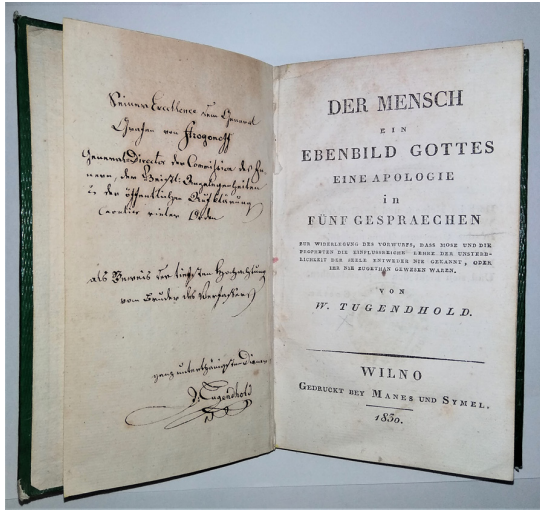 Seiner Excellence dem General
Grafen von Strogonoff
General-Director der
der öffentlichen Aufklärung
als Beweis der tiefsten Hochachtung
vom Bruder des Verfassers
ganz unterthänigster Diener
J. Tugendhold
DER MENSCH
EIN
EBENBILD GOTTES
EINE APOLOGIE
in
FÜNF GESPRAECHEN
ZUR WIDERLEGUNG DES VORWURFS, DASS MOSE UND DIE
PROPHETEN DIE EINFLUSSREICHE LEHRE DER UNSTERB-
LICHKEIT DER SEELE ENTWEDER NIE GEKANNT, ODER
IHR NIE ZUGETHAN GEWESEN WAREN.
VON
W. TUGENDHOLD.
WILNO
GEDRUCKT BEY MANES UND SYMEL.
1830.